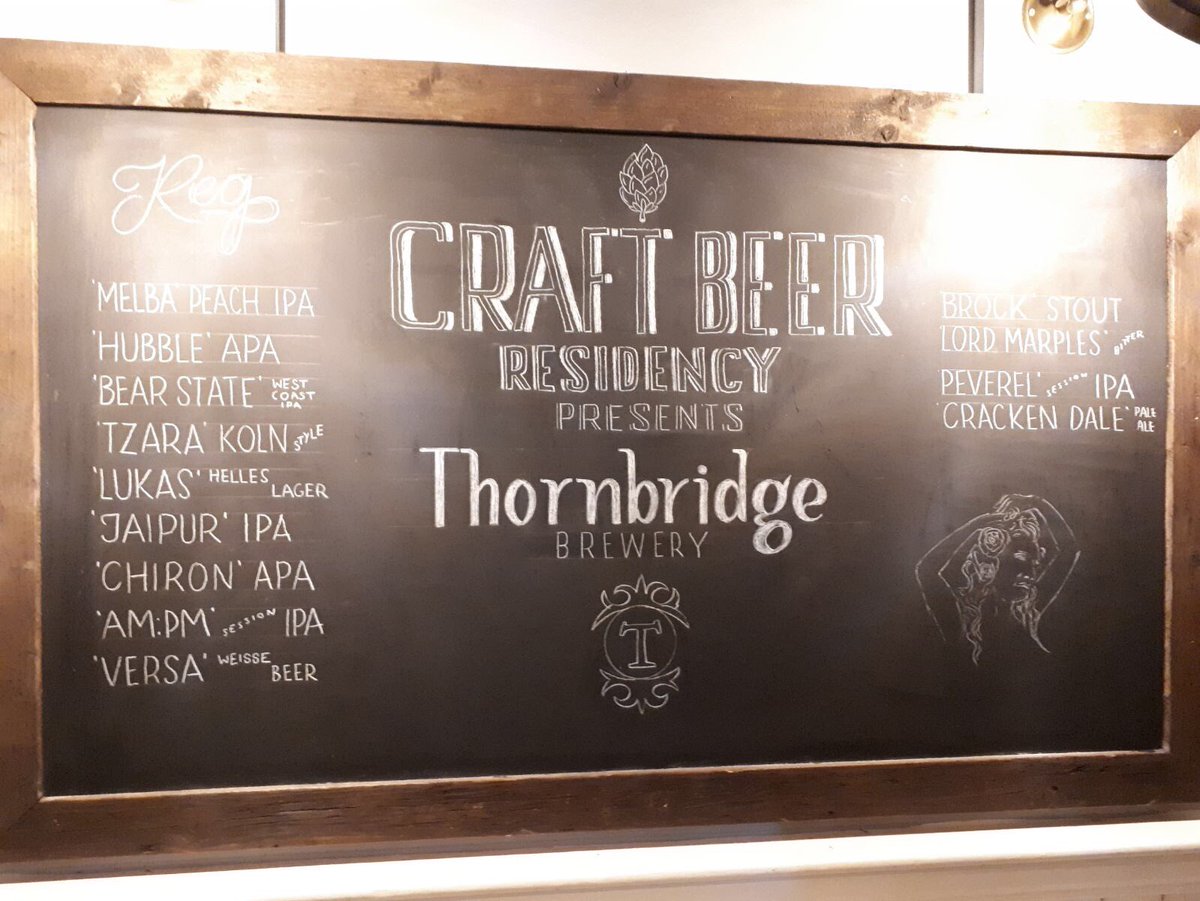 Keg
'MELBA' PEACH IPA
'HUBBLE' APA
'BEAR STATE' WEST COAST IPA
'TZARA' KOLN STYLE
'LUKAS' HELLES LAGER
'JAIPUR' IPA
'CHIRON' APA
'AM:PM' SESSION IPA
'VERSA' WEISSE BEER
CRAFT BEER
RESIDENCY
PRESENTS
Thornbridge
BREWERY
T
BROCK' STOUT
'LORD MARPLES' BITTER
PEVEREL' SESSION IPA
'CRACKEN DALE' PALE ALE